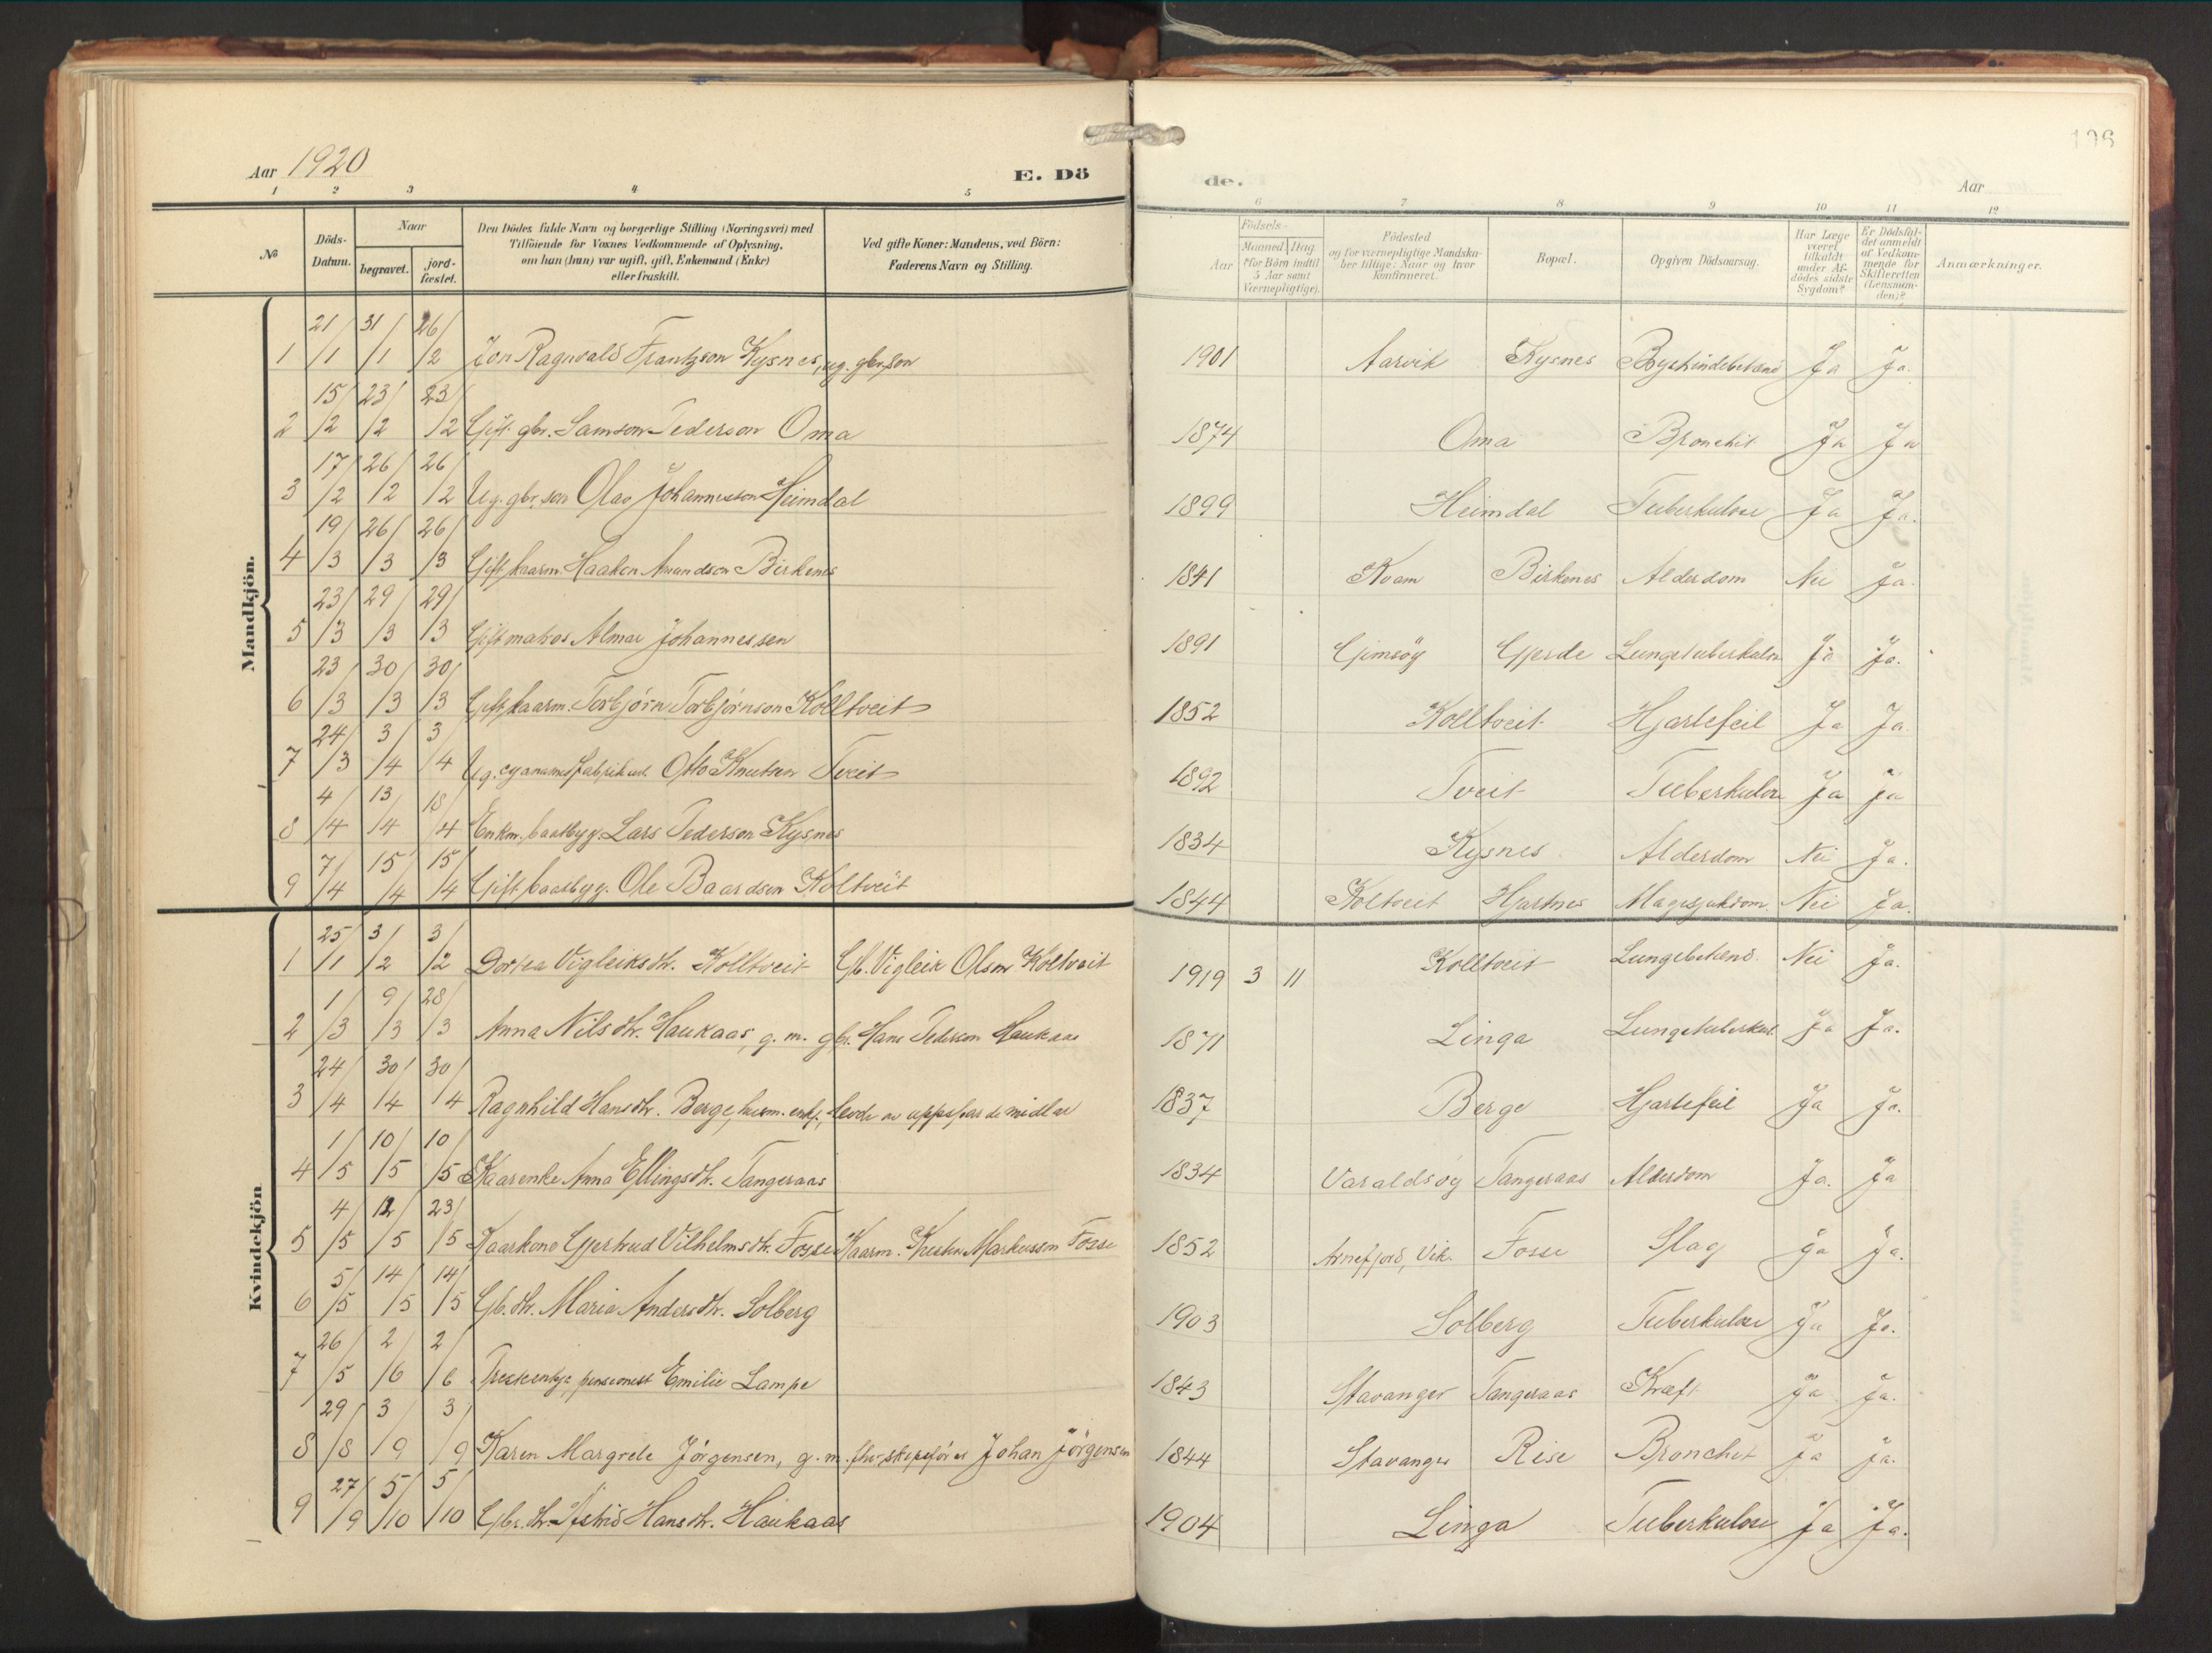 Aar 1920
E. Dö
de.
Aar
106
1 2 3 4 5 6 7 8 9 10 11 12
№
Döds-Datum.
Naar
begravet.
jord-fæstet.
Den Dödes fulde Navn og borgerlige Stilling (Næringsvei) med
Tilföiende for Voxnes Vedkommende af Oplysning,
om han (hun) var ugift, gift, Enkemand (Enke)
eller fraskilt.
Ved gifte Koner: Mandens, ved Börn:
Faderens Navn og Stilling.
Födsels-
Aar
Maaned Dag
(for Börn indtil
5 Aar samt
Værnepligtige).
Födested
og for værnepligtige Mandska-
ber tillige: Naar og hvor
konfirmeret.
Bopæl.
Opgiven Dödsaarsag.
Har Læge
været
tilkaldt
under Af-
dödes sidste
Sygdom?
Er Dödsfal-
det anmeldt
af Vedkom-
mende for
Skifteretten
(Lensman-
den)?
Anmærkninger.
Mandkjön.
1 21/1 31/1 26/2 Jon Ragnvald Frantzson Kysnes, ug. gbr.son 1901 Aarvik Kysnes Brysthindebetænd Ja Ja.
2 15/2 23/2 23/2 Gift gbr. Samson Pederson Oma 1874 Oma Bronchit Ja Ja
3 17/2 26/2 26/2 Ug. gbr.son Olav Johannesson Heimdal 1899 Heimdal Tuberkulose Ja Ja.
4 19/3 26/3 26/3 Gift kaarm. Haaken Amundson Birkenes 1841 Kvam Birkenes Alderdom Nei Ja.
5 23/3 29/3 29/3 Gift matros Almar Johannessen 1891 Gimsøy Gjerde Lungetuberkulose Ja Ja.
6 23/3 30/3 30/3 Gift kaarm. Torbjørn Torbjørnson Kolltveit 1852 Kolltveit Hjartefeil Ja Ja.
7 24/3 3/4 3/4 Ug. cyanamidfabrikarb. Otto Knutson Tveit 1892 Tveit Tuberkulose Ja Ja
8 4/4 13/4 18/4 Enkm. baatbyg. Lars Pederson Kysnes 1834 Kysnes Alderdom Nei Ja.
9 7/4 15/4 15/4 Gift baatbyg. Ole Baardson Koltveit 1844 Koltveit Hjartnes Magesjukdom Nei Ja.
Kvindekjön
1 25/1 3/2 3/2 Dortea Vigleiksdtr. Kolltveit Gb. Vigleik Olson Koltveit 1919 3 11 Kolltveit Lungebetænd. Nei Ja.
2 1/3 9/3 28/3 Anna Nilsdtr. Haukaas, g. m. gbr. Hans Pederson Haukaas 1871 Linga Lungetuberkul. Ja Ja.
3 24/4 30/4 30/4 Ragnhild Hansdtr. Berge, husm. enkj., levde av oppsparde midlar 1837 Berge Hjartefeil Ja Ja.
4 1/5 10/5 10/5 Kaarenke Anna Ellingsdtr. Tangeraas 1834 Varaldsøy Tangeraas Alderdom Ja. Ja
5 4/5 12/5 23/5 Kaarkone Gjertrud Vilhelmsdtr. Fosse Kaarm. Kristen Markusson Fosse 1852 Arnefjord, Vik. Fosse Slag Ja Ja.
6 5/5 14/5 14/5 Gb. dtr. Maria Andersdtr. Solberg 1903 Solberg Tuberkulose Ja Ja.
7 26/5 2/6 2/6 Prestenkje, pensionist Emilie Lampe 1843 Stavanger Tangeraas Kræft Ja Ja.
8 29/8 3/9 3/9 Karen Margrete Jörgensen, g. m. fhv. skipsförer Johan Jörgensen 1844 Stavanger Rise Bronchit Ja Ja.
9 27/9 5/10 5/10 Gbr. dtr. Astrid Hansdtr. Haukaas 1904 Linga Tuberkulose Ja Ja.